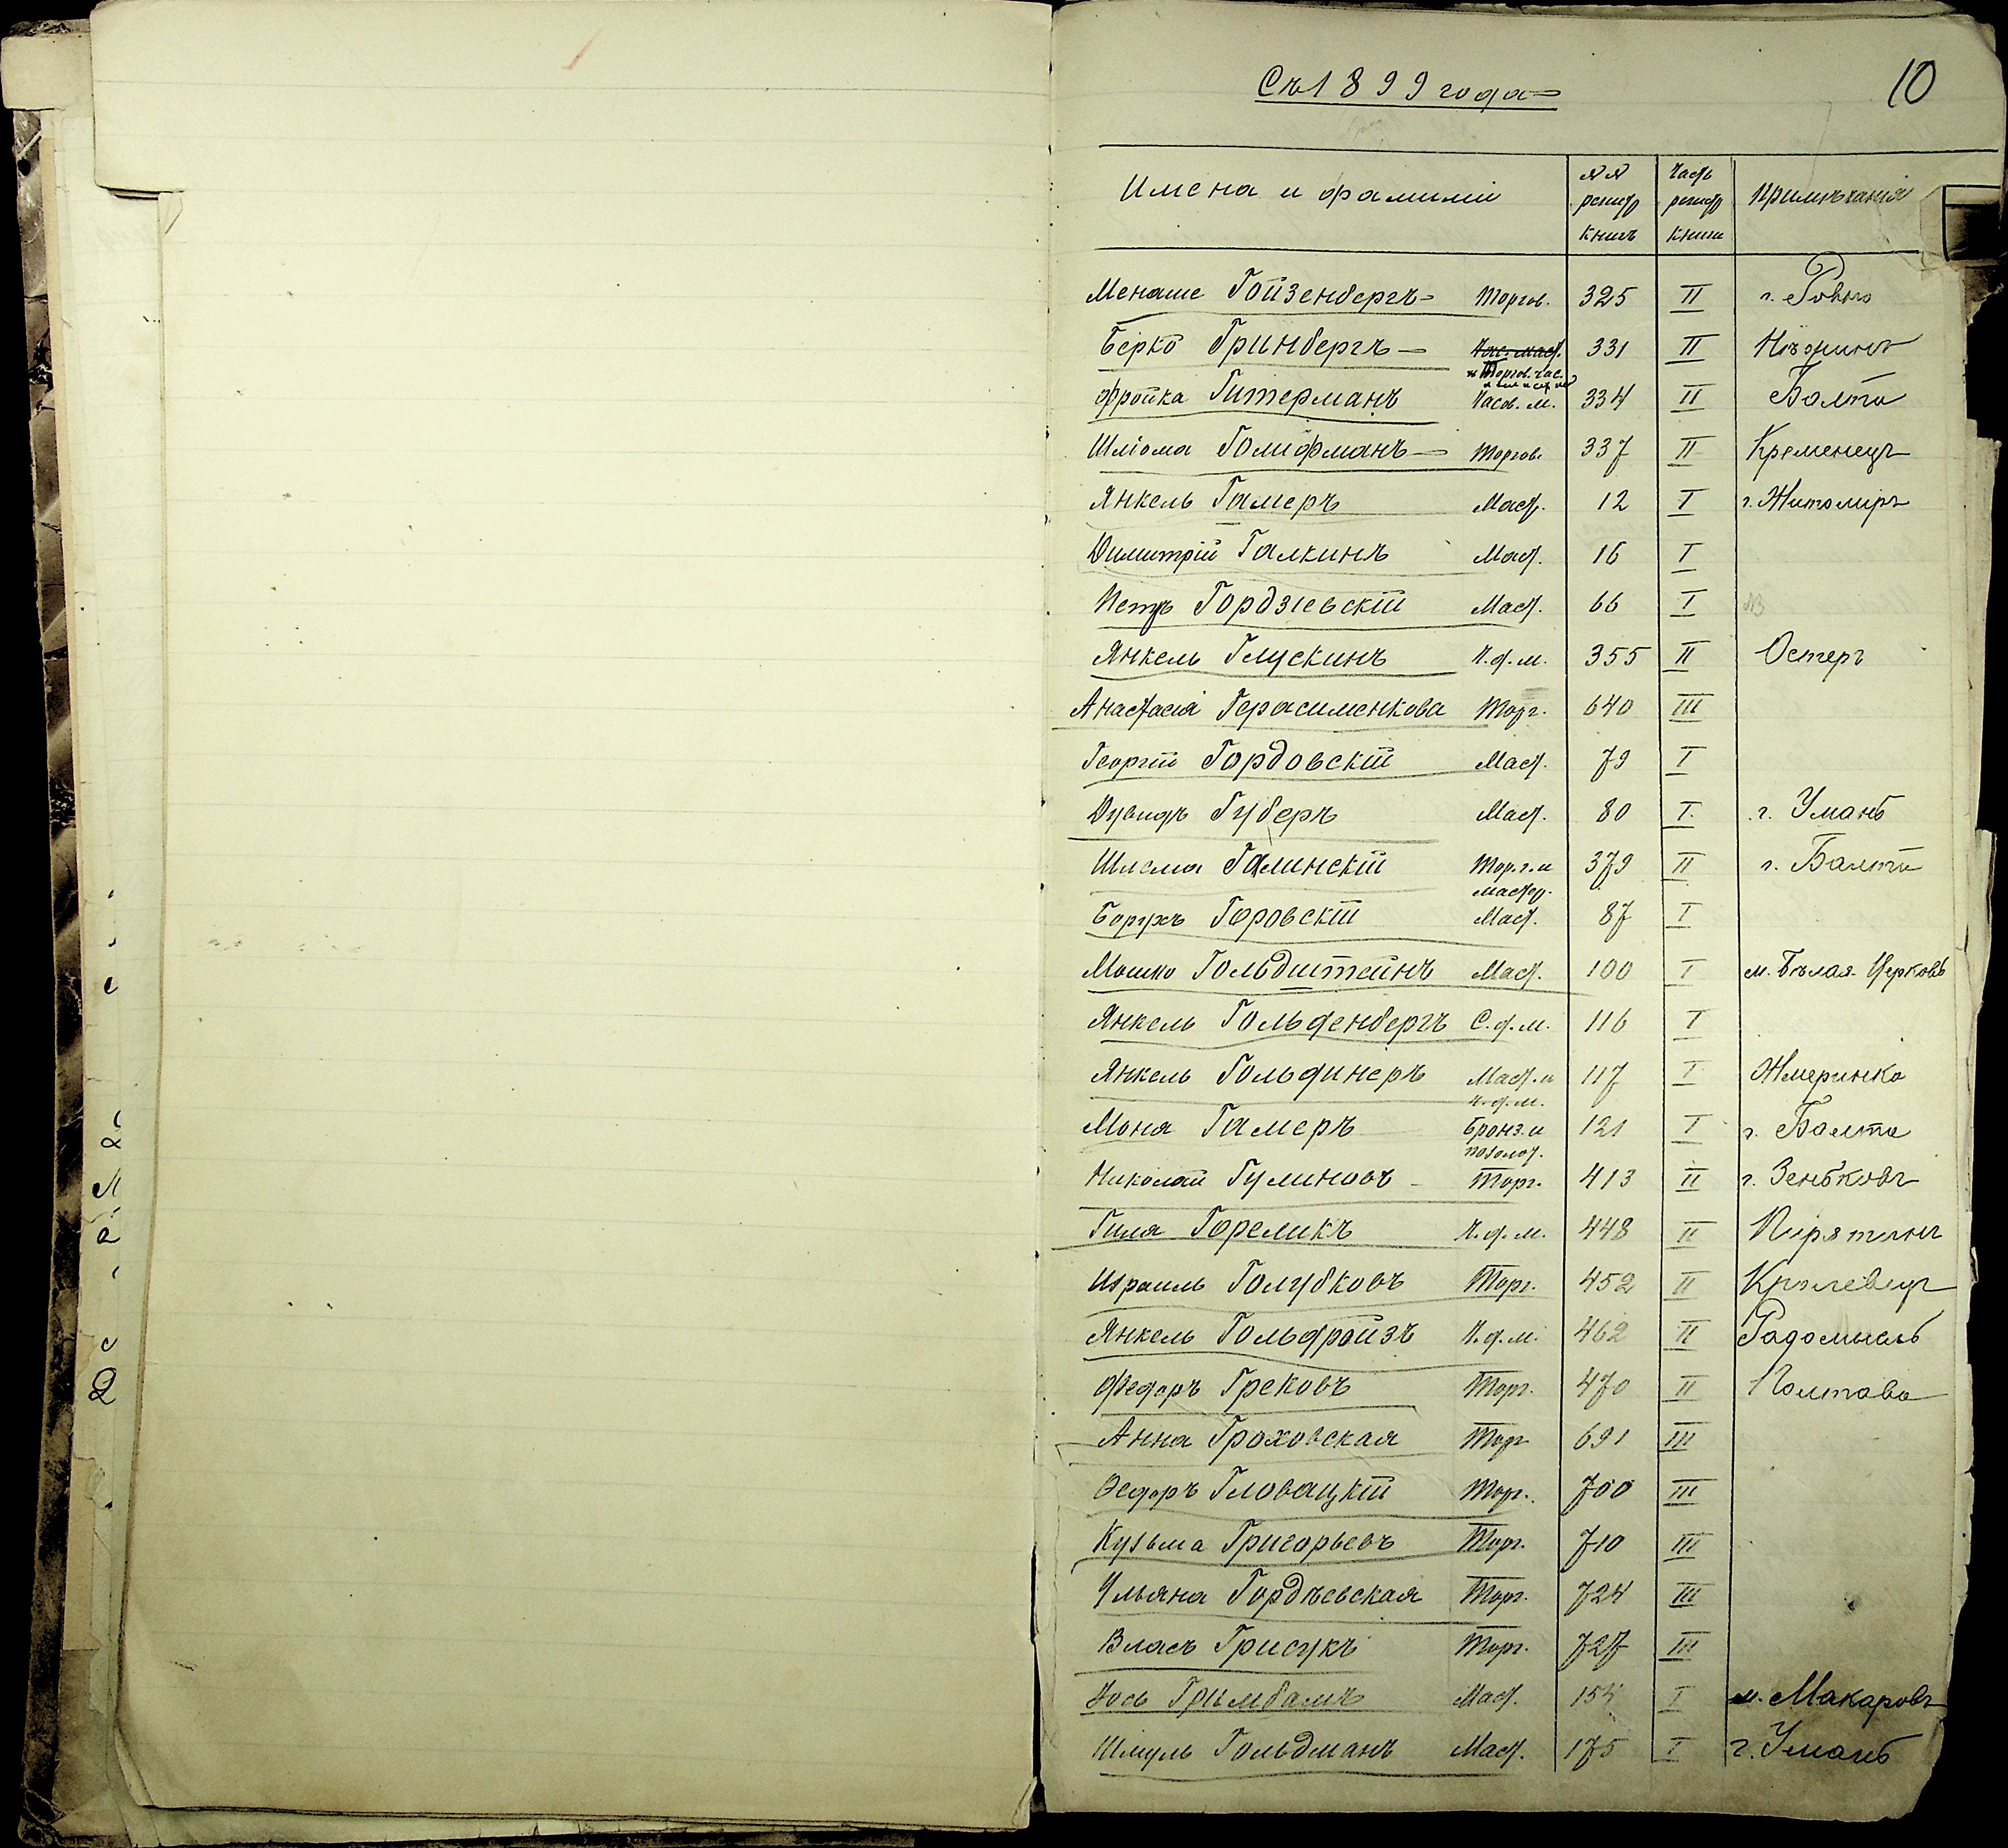 Съ 1899 года
10
Имена и фамиліи №№ регистр книгъ Часть регистр книги Примѣчанія
Менаше Гойзенбергъ Торгов. 325 II г. Ровно
Берко Гринбергъ Час. маст. 331 II Нѣжинъ
и Торгов. час.
Фройка Гитерманъ Часов. м. 334 II Балта
Шлiома Голифманъ Торгов. 337 II Кременецъ
Янкель Гамеръ Маст. 12 I г. Житомiръ
Димитрiй Галкинъ Маст. 16 I
Петръ Гордзiевскiй Маст. 66 I
Янкель Глускинъ Ч.д.м. 355 II Остеръ
Анастасiя Герасименкова Торг. 640 III
Георгiй Гордовскiй Маст. 79 I
Дувидъ Губеръ Маст. 80 I г. Умань
Шлема Галинскiй Торг. и 379 II г. Балта
мастер.
Борухъ Горовскiй Маст. 87 I
Мошко Гольдштейнъ Маст. 100 I м. Бѣлая-Церковь
Янкель Гольденбергъ С.д.м. 116 I
Янкель Гольдинеръ Маст. и 117 I Жмеринка
ч.д.м.
Моня Гамеръ Бронз. и 121 I г. Балта
позолот.
Николай Гуминовъ Торг. 413 II г. Зеньковъ
Гиля Гореликъ Ч.д.м. 448 II Пирятинъ
Израиль Голубковъ Торг. 452 II Кролевецъ
Янкель Гольдройзъ Ч.д.м. 462 II Радомысль
Федоръ Грековъ Торг. 470 II Полтава
Анна Гроховская Торг 691 III
Ѳедоръ Гловацкiй Торг. 700 III
Кузьма Григорьевъ Торг. 710 III
Ульяна Гордѣевская Торг. 724 III
Власъ Грисукъ Торг. 727 III
Іось Гримбалтъ Маст. 154 I м. Макаровъ
Шмуль Гольдманъ Маст. 175 I г. Умань